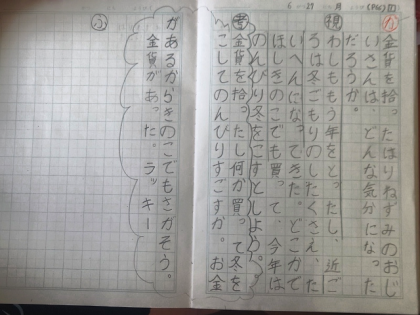 6-29 月 (P66) 四
な 金貨を拾ったはりねずみのおじ
いさんは、どんな気分になった
だろうか。
想 わしももう年をとったし、近ご
ろは冬ごもりのしたくさえ、た
いへんになってきた。どこかで
ほしきのこでも買って、今年は
のんびり冬をこすとしよう。
考 金貨を拾ったし何か買って冬を
こしてのんびりすごすか。お金
があるからきのこでもさがそう。
金貨があった。ラッキー
ふ